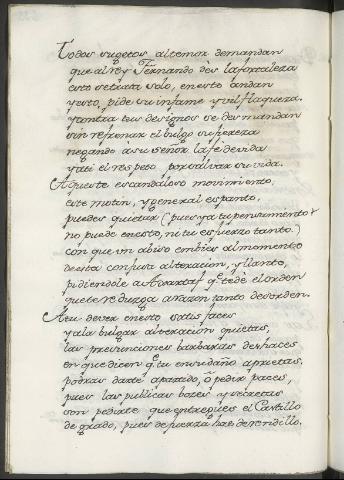 Todos sugetos al temor demandan
que al rey Fernando dès la fortaleza
esto se trata solo, en esto andan
y esto, pide su infame y vil flaqueza.
y contra tus designos se desmandan
sin refrenar el bulgo su fiereza
negando à su señor la fe devida
y a ti el respeto, por salvar su vida.
Aqueste escandaloso movimiento,
este motin, y general espanto,
puedes quietar (pues ya tu pensimiento
no puede en esto, ni tu esfuerzo tanto.)
con que un abiso embies al momento
de esta confusa alteracion, y llanto,
pidiendole a que te dè el orden
que te reduzga a razon tanto desorden.
A tu dever en esto satisfaces
y a la bulgar alteracion quietas,
las presunciones barbaras deshaces
en que dicen qe. tu en su daño aprietas.
podras darte apartado, ò pedir paces,
pues las publicas bozes y secretas
son pedirte que entregues el Castillo
de grado, pues de fuerza has de rendillo.